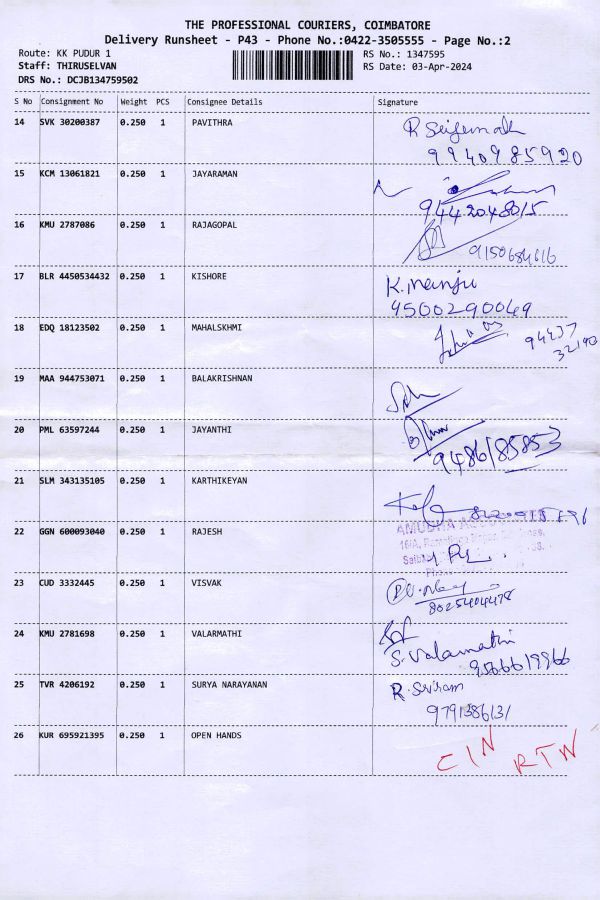 THE PROFESSIONAL COURIERS, COIMBATORE
Delivery Runsheet - P43 - Phone No.:0422-3505555 - Page No.:2
Route: KK PUDUR 1
RS No.: 1347595
Staff: THIRUSELVAN
RS Date: 03-Apr-2024
DRS No.: DCJB134759502
S No Consignment No Weight PCS Consignee Details Signature
14 SVK 30200387 0.250 1 PAVITHRA
9940985920
15 KCM 13061821 0.250 1 JAYARAMAN
9442048015
16 KMU 2787086 0.250 1 RAJAGOPAL
9150684616
17 BLR 4450534432 0.250 1 KISHORE
K. manju
9500290069
18 EDQ 18123502 0.250 1 MAHALSKHMI
94437
32190
19 MAA 944753071 0.250 1 BALAKRISHNAN
20 PML 63597244 0.250 1 JAYANTHI
9486185853
21 SLM 343135105 0.250 1 KARTHIKEYAN
22 GGN 600093040 0.250 1 RAJESH
AMUDHA
23 CUD 3332445 0.250 1 VISVAK
8025404478
24 KMU 2781698 0.250 1 VALARMATHI
S. Valamathi
9566619966
25 TVR 4206192 0.250 1 SURYA NARAYANAN
R. Sriram
9791386131
26 KUR 695921395 0.250 1 OPEN HANDS
CIN RTN